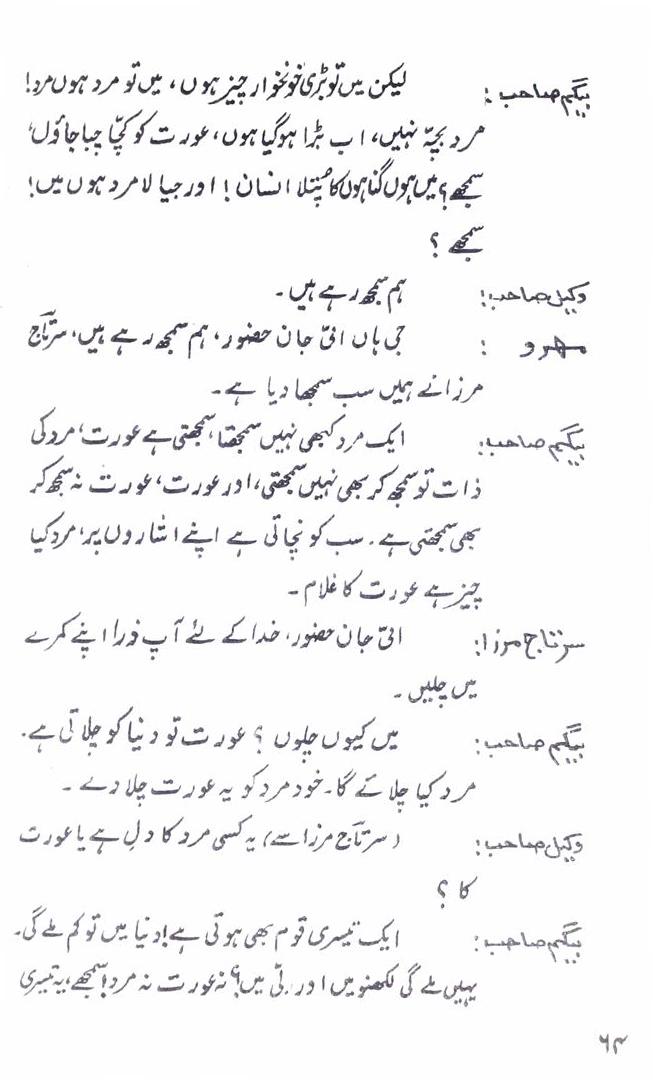 بیگم صاحب: لیکن میں تو بڑی خونخوار چیز ہوں، میں تو مرد ہوں مرد!
مرد بچہّ نہیں، اب بڑا ہوگیا ہوں، عورت کو کچّا چبا جاؤں،
سمجھے؟ میں ہوں گناہوں کا پُتلا انسان! اور جیالا مرد ہوں میں!
سمجھے ؟
وکیل صاحب: ہم سمجھ رہے ہیں۔
مہرو : جی ہاں امّی جان حضور، ہم سمجھ رہے ہیں، سرتاج
مرزا نے ہمیں سب سمجھا دیا ہے۔
بیگم صاحب: ایک مرد کبھی نہیں سمجھتا، سمجھتی ہے عورت، مرد کی
ذات تو سمجھ کر بھی نہیں سمجھتی، اور عورت، عورت نہ سمجھ کر
بھی سمجھتی ہے۔ سب کو نچاتی ہے اپنے اشاروں پر، مرد کیا
چیز ہے عورت کا غلام۔
سرتاج مرزا: امّی جان حضور، خدا کے لئے آپ فوراً اپنے کمرے
میں چلیں۔
بیگم صاحب: میں کیوں چلوں ؟ عورت تو دنیا کو چلاتی ہے۔
مرد کیا چلائے گا۔ خود مرد کو یہ عورت چلا دے۔
وکیل صاحب: (سرتاج مرزا سے) یہ کسی مرد کا دل ہے یا عورت
کا ؟
بیگم صاحب: ایک تیسری قوم بھی ہوتی ہے! دنیا میں تو کم ملے گی۔
یہیں ملے گی لکھنؤ میں اور دلّی میں؟ نہ عورت نہ مرد! سمجھے، یہ تیسری
۶۴